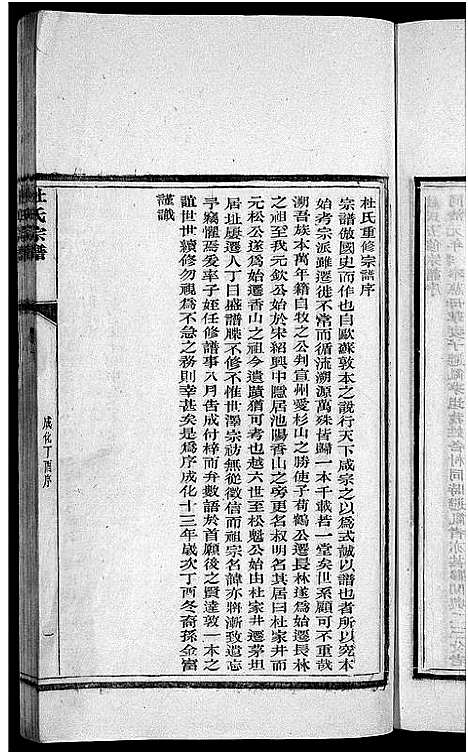 杜氏重修宗譜序
宗譜倣國史而作也自歐蘇敦本之說行天下咸宗之以為式誠以譜也者所以究本
始考宗派雖遷徙不常而循流溯源萬殊皆歸一本千載若一堂矣世系顧可不重哉
溯吾族本萬年籍自牧之公判宣州愛杉山之勝使子荀鶴公遷長林遂為始遷長林
之祖至我元欽公於宋紹興中隱居池陽香山之旁更名叔明名其居曰杜家井而
元松公遂為始遷香山之祖今遺蹟猶可考也越六世至松魁公始由杜家井遷茅坦
居址屢遷人丁日盛譜牒不修不惟世澤宗祊無從徵信而祖宗名諱亦將漸致遺忘
予竊懼焉爰率子姪任修譜事八月告成付梓而弁數語於首願後之賢達敦一本之
誼世世續修勿視為不急之務則幸甚矣是為序成化十三年歲次丁酉冬裔孫金富
謹識
杜氏宗譜
成化丁酉序
一